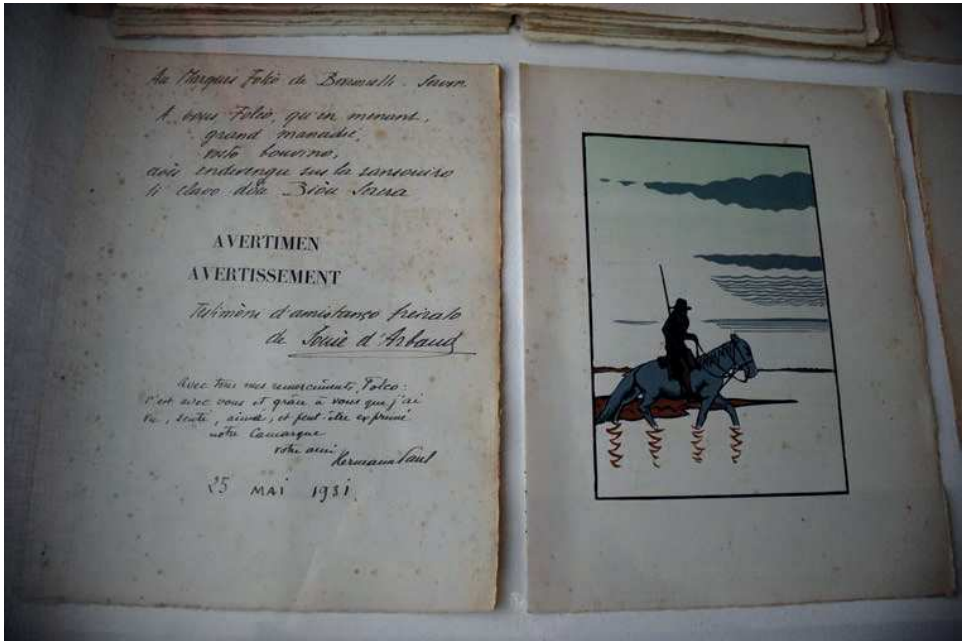 Au Marques Folcò de Baroncelli-Javon
A vous Folcò, qu'en menant,
grand manadié,
vosto bouvino,
avès endevengu sus la sansouiro
li clavo dóu Biòu Sacra
AVERTIMEN
AVERTISSEMENT
Testimòni d'amistanço freiralo
de Jousè d'Arbaud
Avec tous mes remerciements, Folco :
C'est avec vous et grâce à vous que j'ai
vu, senti, aimé, et peut-être exprimé
notre Camargue
votre ami
Hermann Paul
25 MAI 1931.